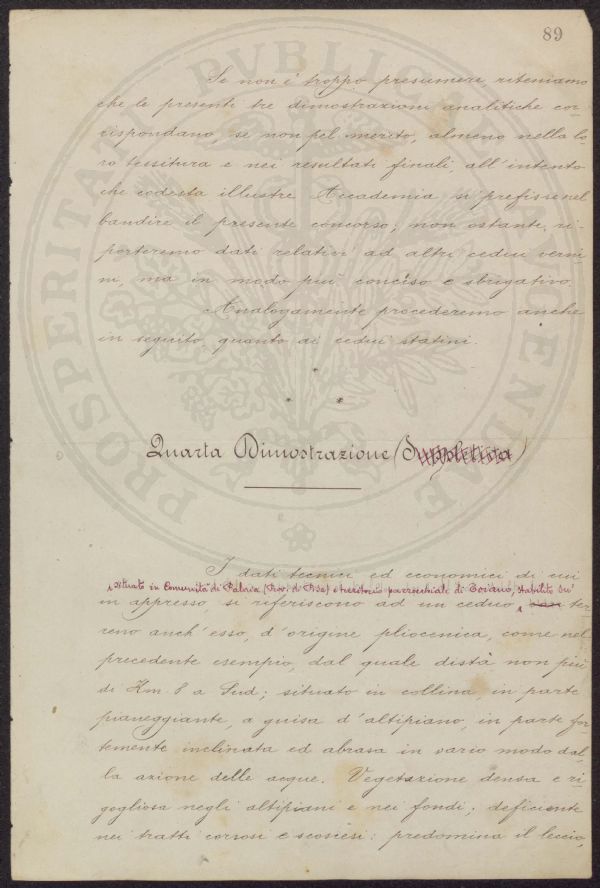 89
Se non è troppo presumere, riteniamo
che le presenti tre dimostrazioni analitiche cor-
rispondano, se non pel merito, almeno nella lo-
ro tessitura e nei resultati finali, all'intento
che codesta illustre Accademia si prefisse nel
bandire il presente concorso; non ostante, ri-
porteremo dati relativi ad altri cedui vern-
ni, ma in modo più conciso e sbrigativo.
Analogamente procederemo anche
in seguito, quanto ai cedui statini.
* * *
Quarta Dimostrazione (Suppletiva)
I dati tecnici ed economici di cui
situato in Comunità di Palaia (Prov. di Pisa) e territorio parrocchiale di Toiano, stabilito su'
in appresso si riferiscono ad un ceduo ter-
reno anch'esso, d'origine pliocenica, come nel
precedente esempio, dal quale distà non più
di Km. 8 a Sud; situato in collina, in parte
pianeggiante, a guisa d'altipiano, in parte for-
temente inclinata ed abrasa in vario modo dal-
la azione delle acque. Vegetazione densa e ri-
gogliosa negli altipiani e nei fondi; deficiente
nei tratti corrosi e scoscesi: predomina il leccio,
PROSPERITATI PVBLICAE AVGENDAE